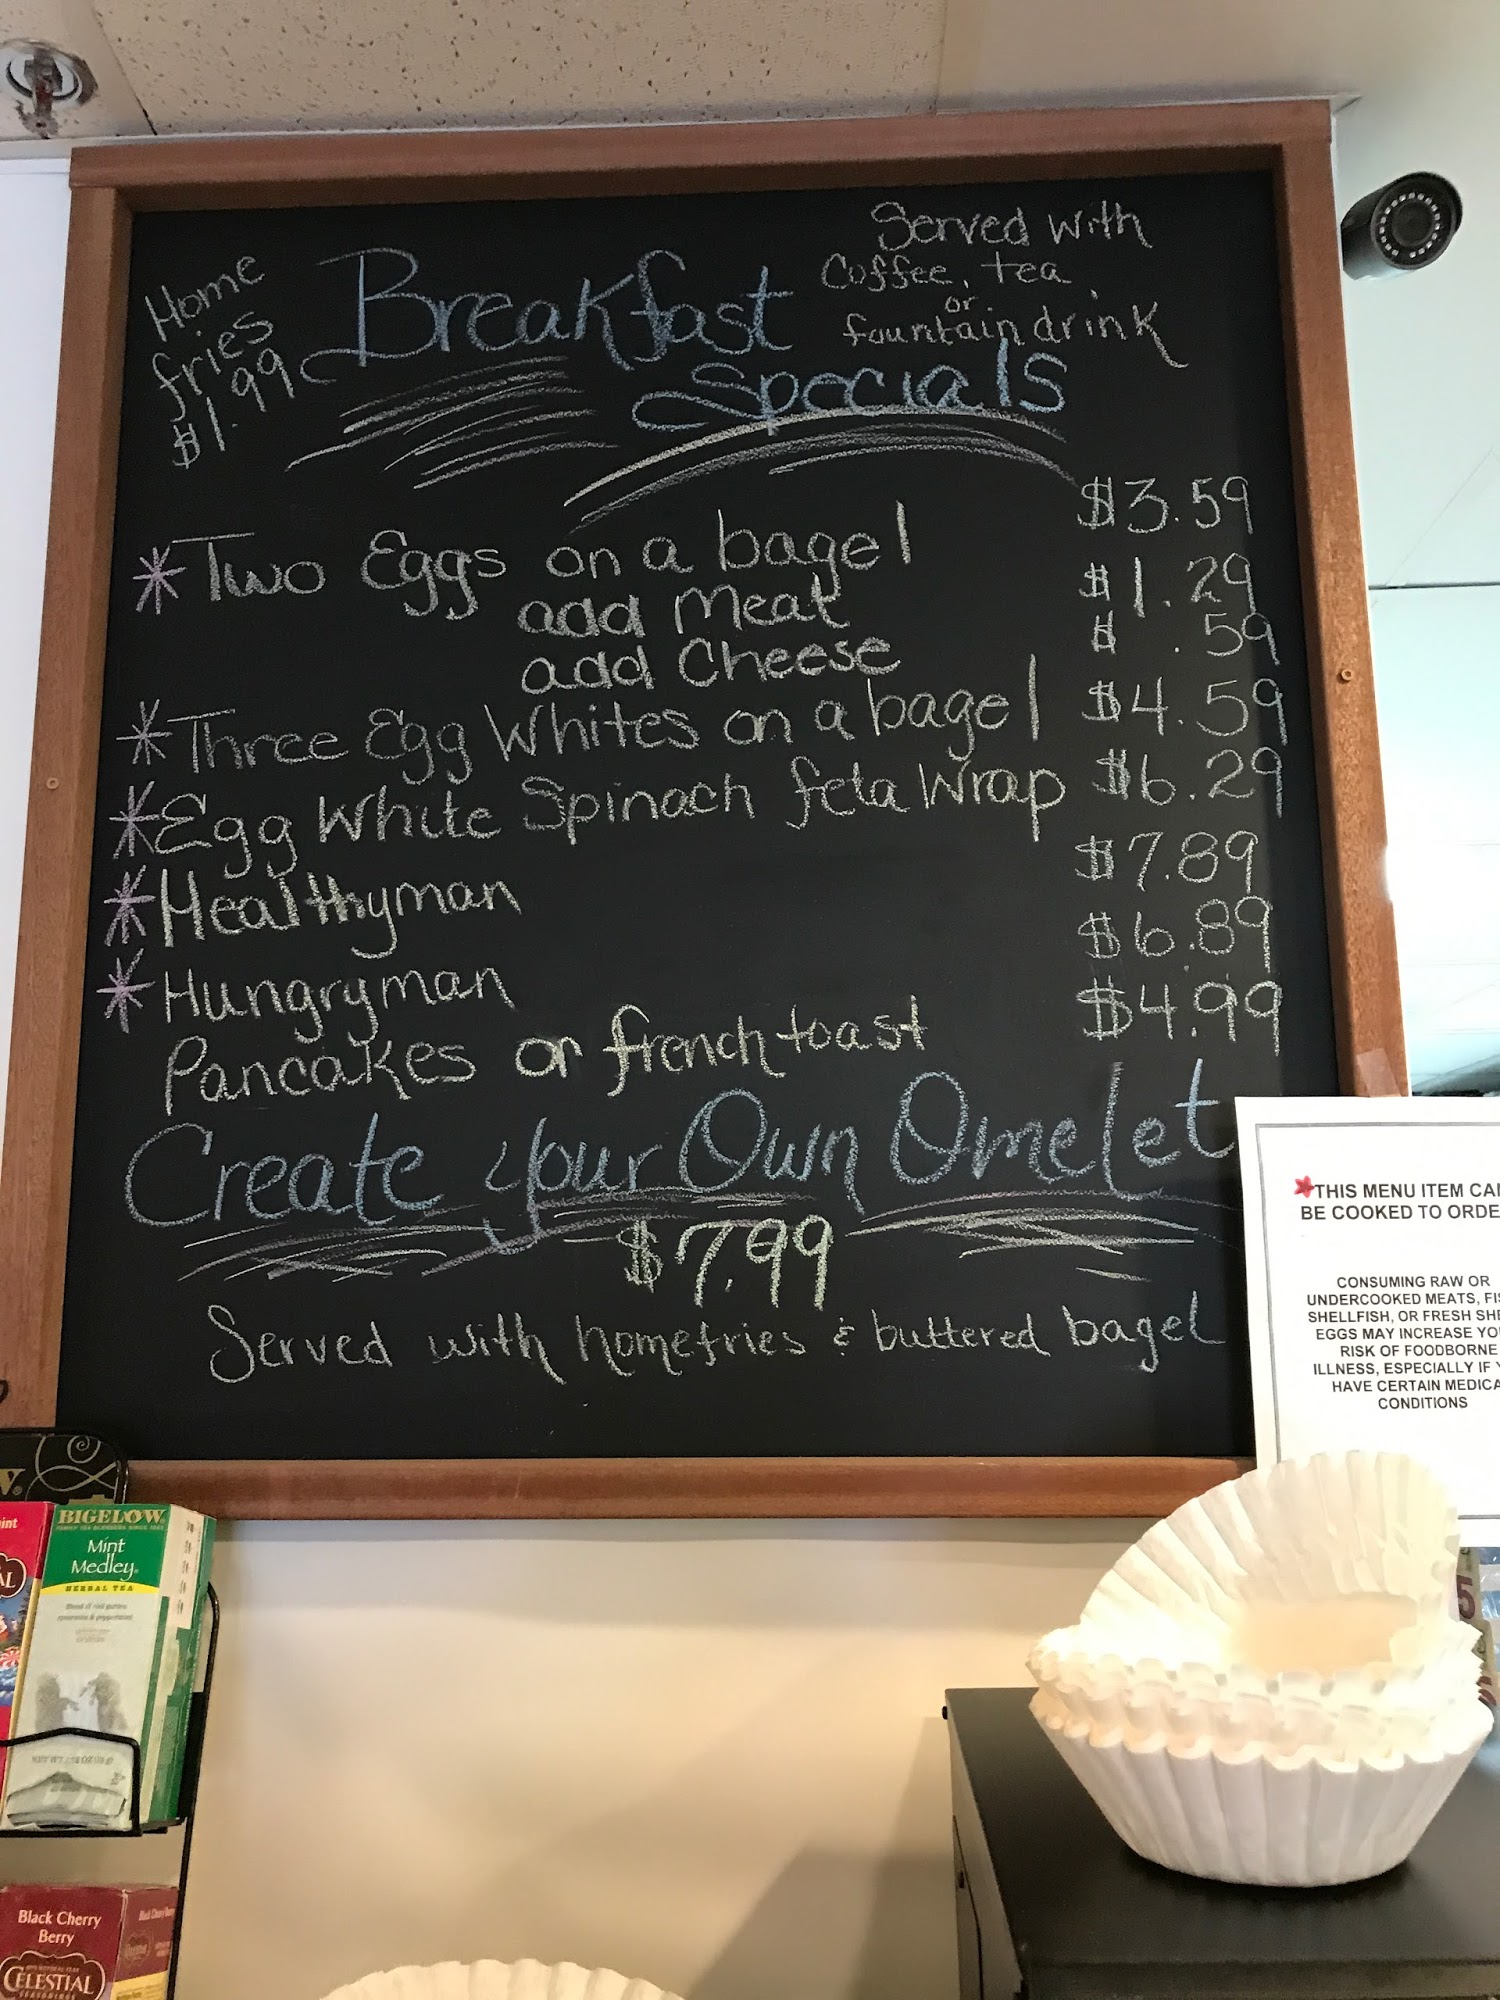 Home
fries
$1.99
Breakfast
Specials
Served with
Coffee, tea
or
fountain drink
*Two Eggs on a bagel $3.59
add Meat $1.29
add Cheese $.59
*Three Egg Whites on a bagel $4.59
*Egg White Spinach feta Wrap $6.29
*Healthyman $7.89
*Hungryman $6.89
Pancakes or french toast $4.99
Create your Own Omelet
$7.99
Served with homefries & buttered bagel
*THIS MENU ITEM CAN
BE COOKED TO ORDE
CONSUMING RAW OR
UNDERCOOKED MEATS, FIS
SHELLFISH, OR FRESH SHE
EGGS MAY INCREASE YOU
RISK OF FOODBORNE
ILLNESS, ESPECIALLY IF Y
HAVE CERTAIN MEDICA
CONDITIONS
BIGELOW
Mint
Medley
HERBAL TEA
Black Cherry
Berry
CELESTIAL
SEASONINGS
5